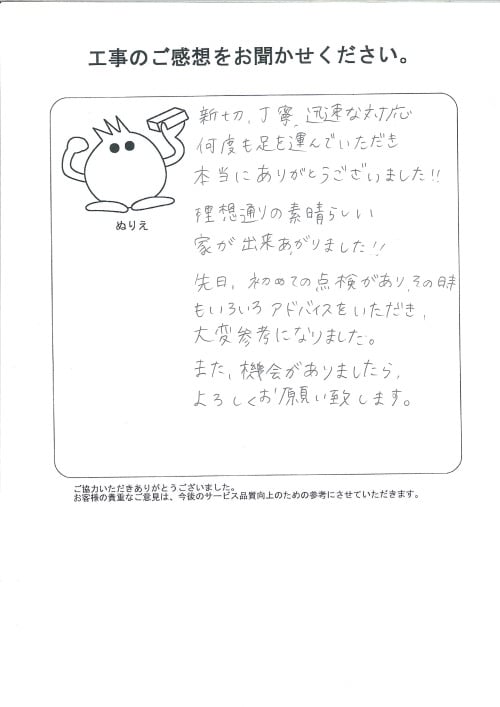 工事のご感想をお聞かせください。
新切、丁寧、迅速な対応
何度も足を運んでいただき
本当にありがとうございました!!
理想通りの素晴らしい
家が出来あがりました!!
先日、初めての点検があり、その時
もいろいろアドバイスをいただき、
大変参考になりました。
また、機会がありましたら、
よろしくお願い致します。
ぬりえ
ご協力いただきありがとうございました。
お客様の貴重なご意見は、今後のサービス品質向上のための参考にさせていただきます。